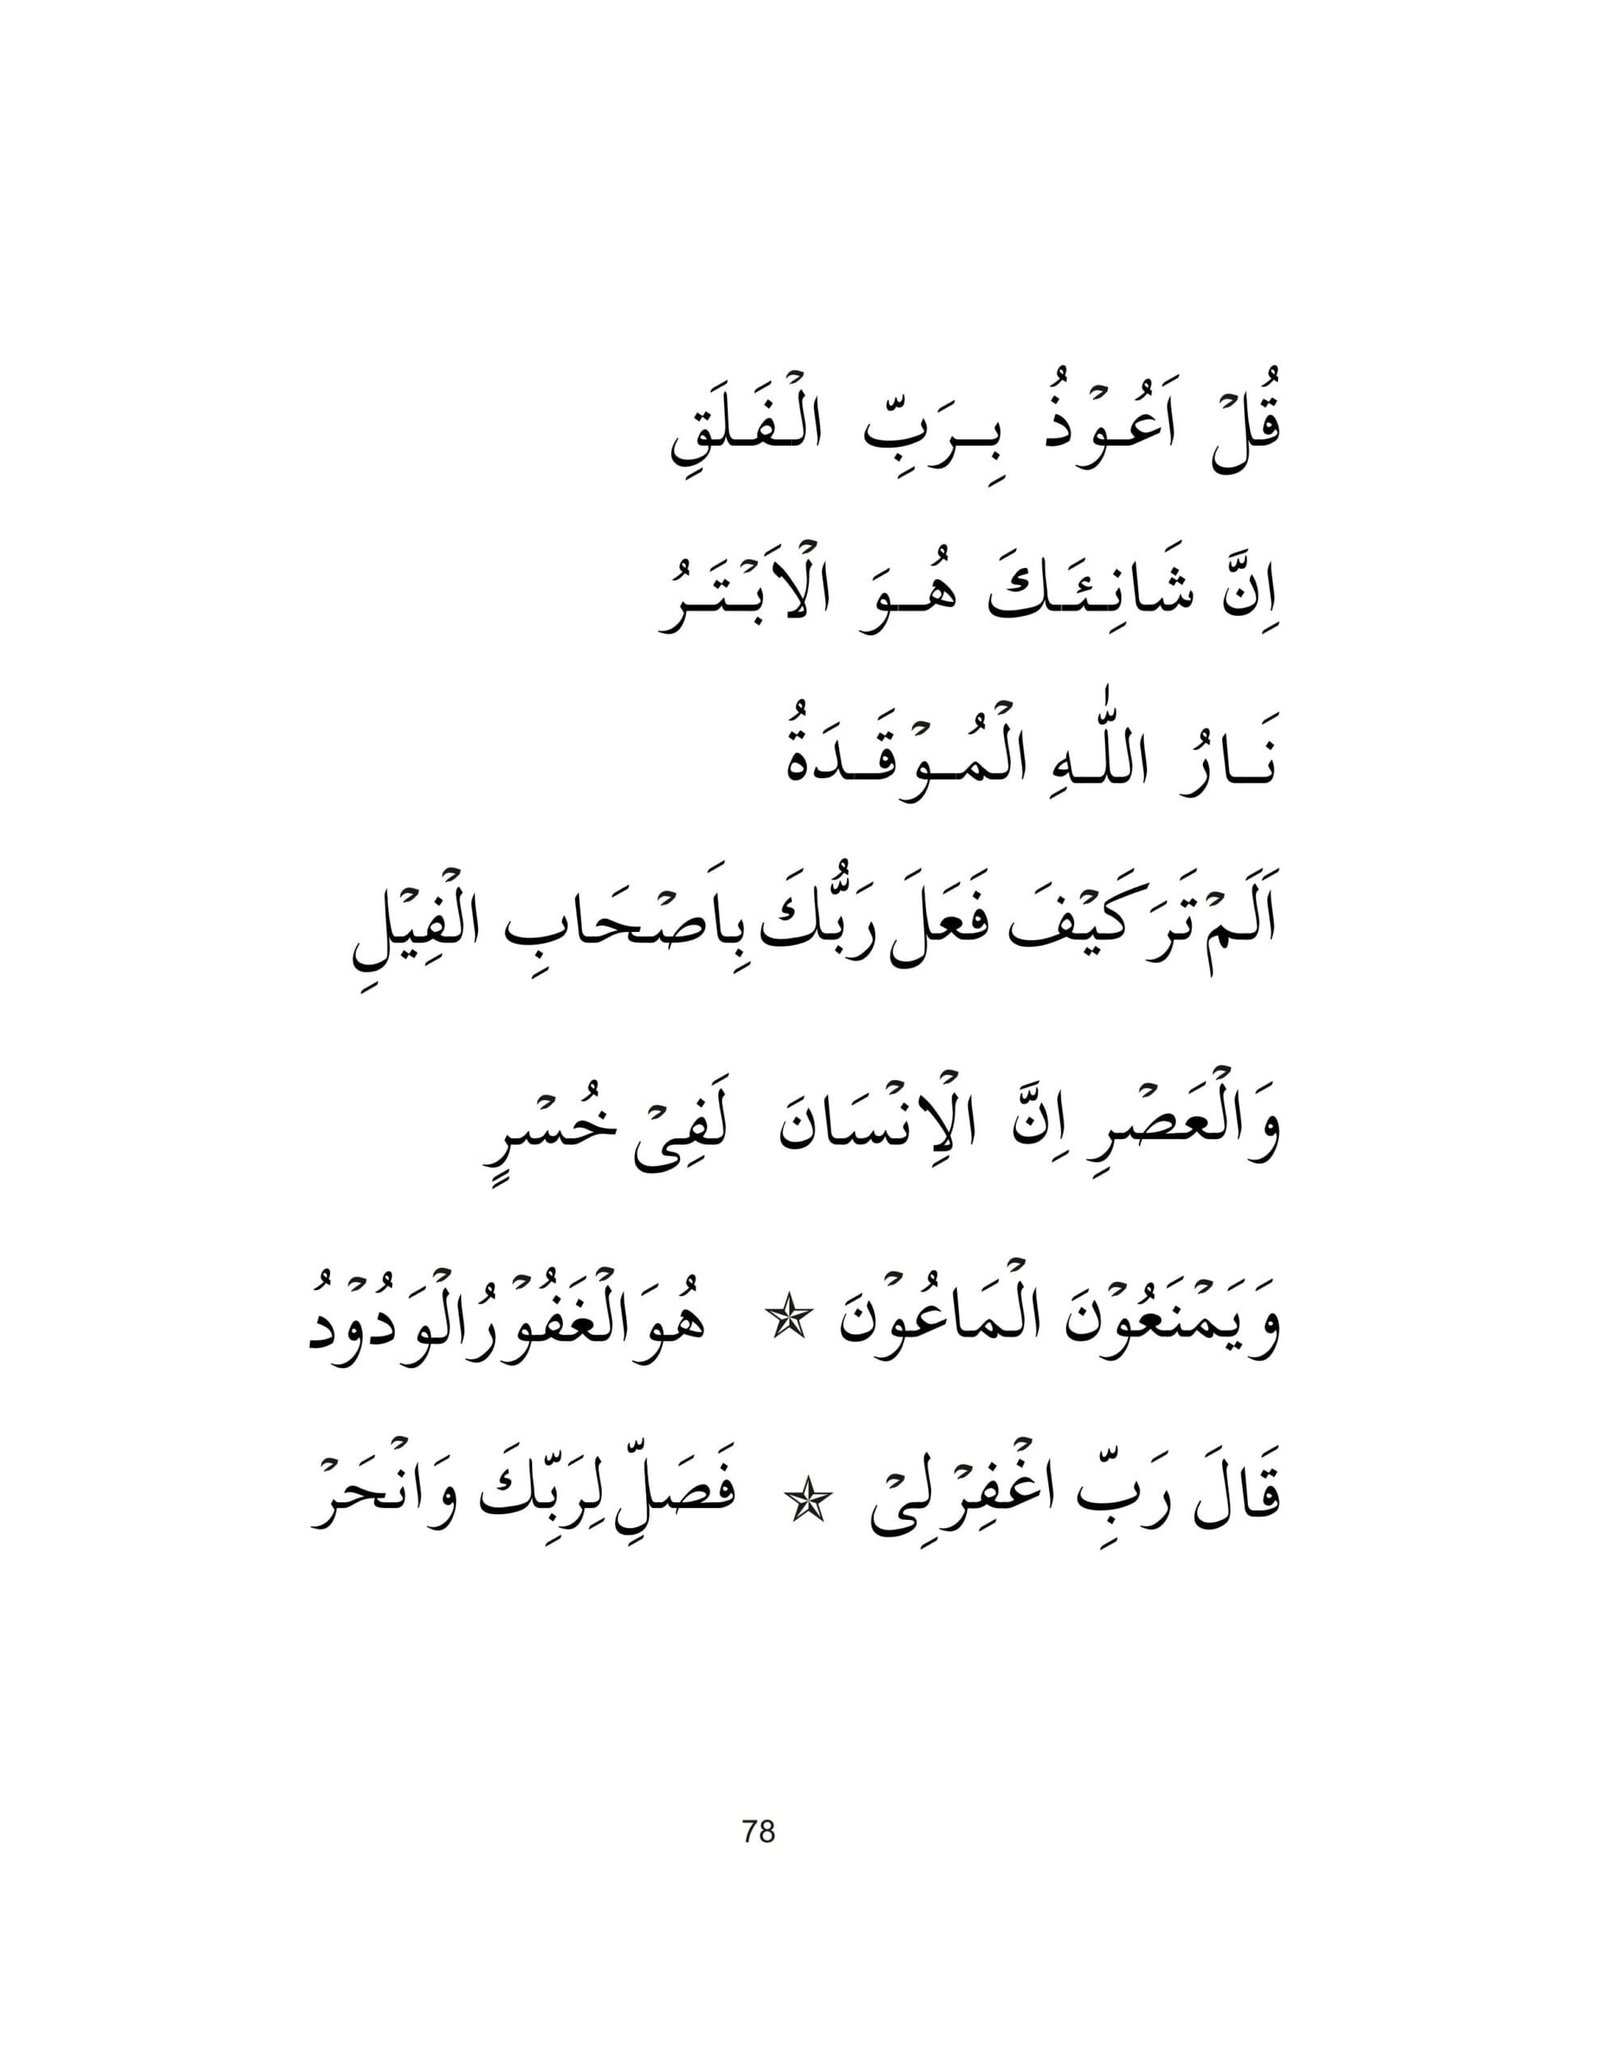 قُلْ اَعُوْذُ بِرَبِّ الْفَلَقِ
اِنَّ شَانِئَكَ هُوَ الْاَبْتَرُ
نَارُ اللّٰهِ الْمُوْقَدَةُ
اَلَمْ تَرَ كَيْفَ فَعَلَ رَبُّكَ بِاَصْحَابِ الْفِيْلِ
وَالْعَصْرِ اِنَّ الْاِنْسَانَ لَفِىْ خُسْرٍ
وَيَمْنَعُوْنَ الْمَاعُوْنَ ✯ هُوَ الْغَفُوْرُ الْوَدُوْدُ
قَالَ رَبِّ اغْفِرْ لِىْ ✯ فَصَلِّ لِرَبِّكَ وَانْحَرْ
78